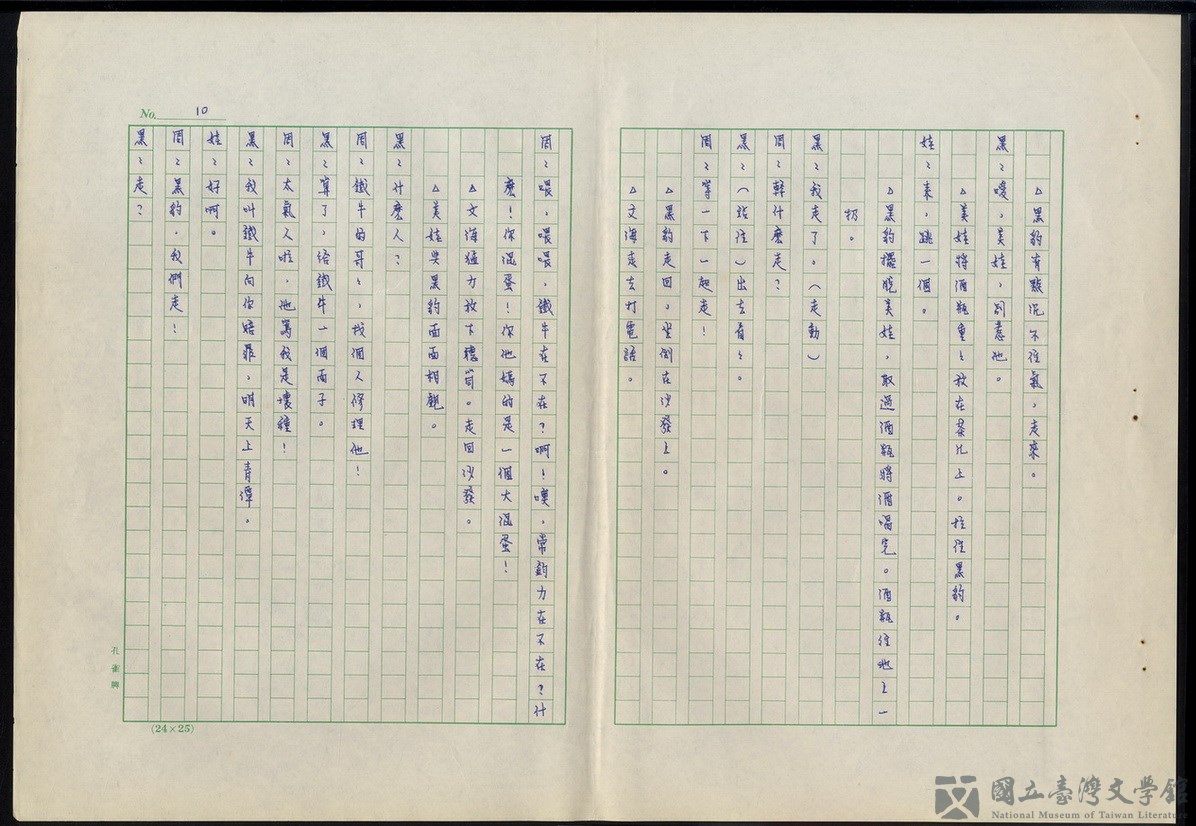 △黑豹有點沉不住氣,走來。
黑:嗳,美娃,别惹他。
△美娃將酒瓶重重放在茶几上。拉住黑豹。
娃:來,跳一個。
△黑豹擺脫美娃,取過酒瓶將酒喝完。酒瓶往地上一
扔。
黑:我走了。(走動)
周:幹什麽走?
黑:(站住)出去看看。
周:等一下一起走!
△黑豹走回,坐倒在沙發上。
△文海走去打電話。
周:喂,喂喂,鐵牛在不在?啊!噢,常鈞力在不在?什
麽!你混蛋!你他媽的是一個大混蛋!
△文海猛力放下聽筒。走回沙發。
△美娃與黑豹面面相覷。
黑:什麽人?
周:鐵牛的哥哥,找個人修理他!
黑:算了,給鐵牛一個面子。
周:太氣人啦,他罵我是壞種!
黑:我叫鐵牛向你賠罪,明天上青潭。
娃:好啊。
周:黑豹,我們走!
黑:走?
No. 10
孔雀牌
(24×25)
國立臺灣文學館
National Museum of Taiwan Literature